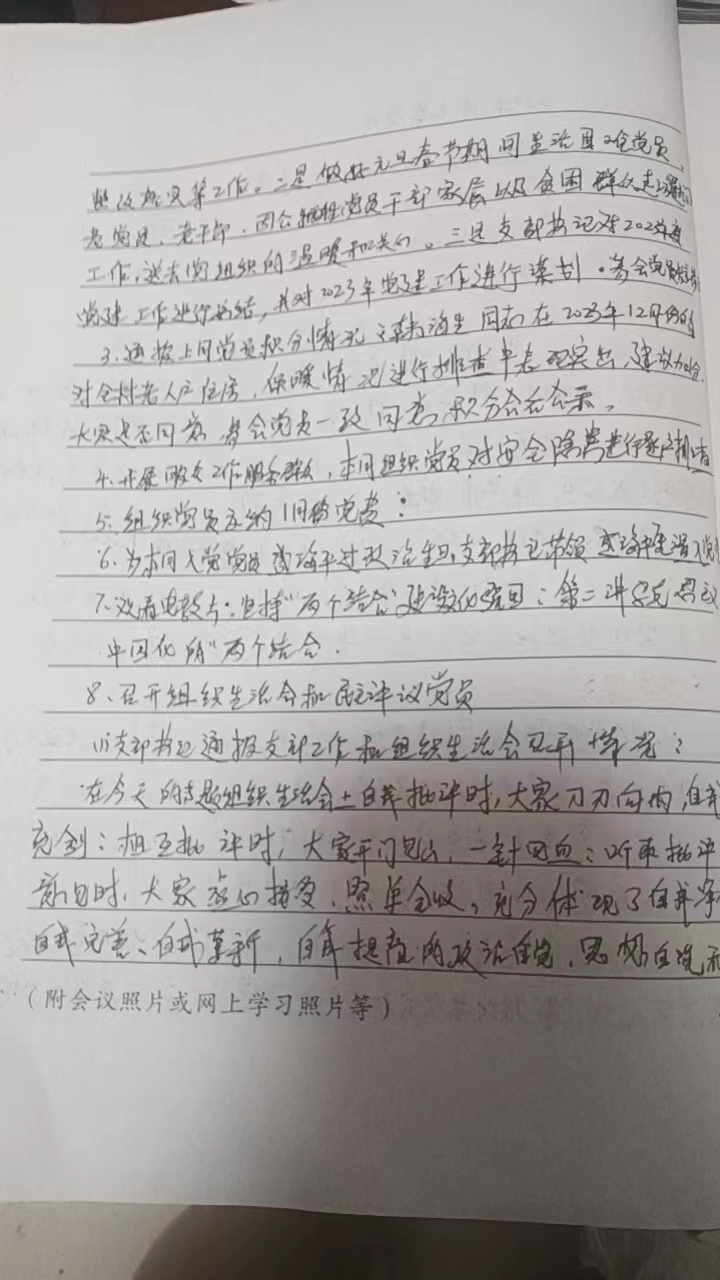 整改落实等工作。二是做好元旦春节期间生活困难党员
老党员、老干部、因公牺牲党员干部家属以及贫困群众走访慰问
工作,送去党组织的温暖和关怀。三是支部书记对2023年度
党建工作进行总结,并对2023年党建工作进行谋划。参会党员
3.通报上月党员积分情况 同志在2023年12月份的
对全村老人户住房,保暖情况进行排查中表现突出,建议加分.
大家是否同意,参会党员一致同意,积分会后公示。
4.开展服务工作服务群众,本月组织党员对安全隐患进行逐户排查
5.组织党员交纳1月份党费:
6.为本月入党党员 过政治生日,支部书记带领 重温入党
7.观看电教片:坚持"两个结合" :第二讲 马克思主义
中国化的"两个结合.
8、召开组织生活会和民主评议党员
(1)支部书记通报支部工作和组织生活会召开情况:
在今天的专题组织生活会上自我批评时,大家刀刃向内,自我
亮剑:相互批评时,大家开门见山,一针见血:听取批评
意见时,大家虚心接受,照单全收,充分体现了自我净
自我完善、自我革新,自我提高的政治自觉,思想自觉和
(附会议照片或网上学习照片等)